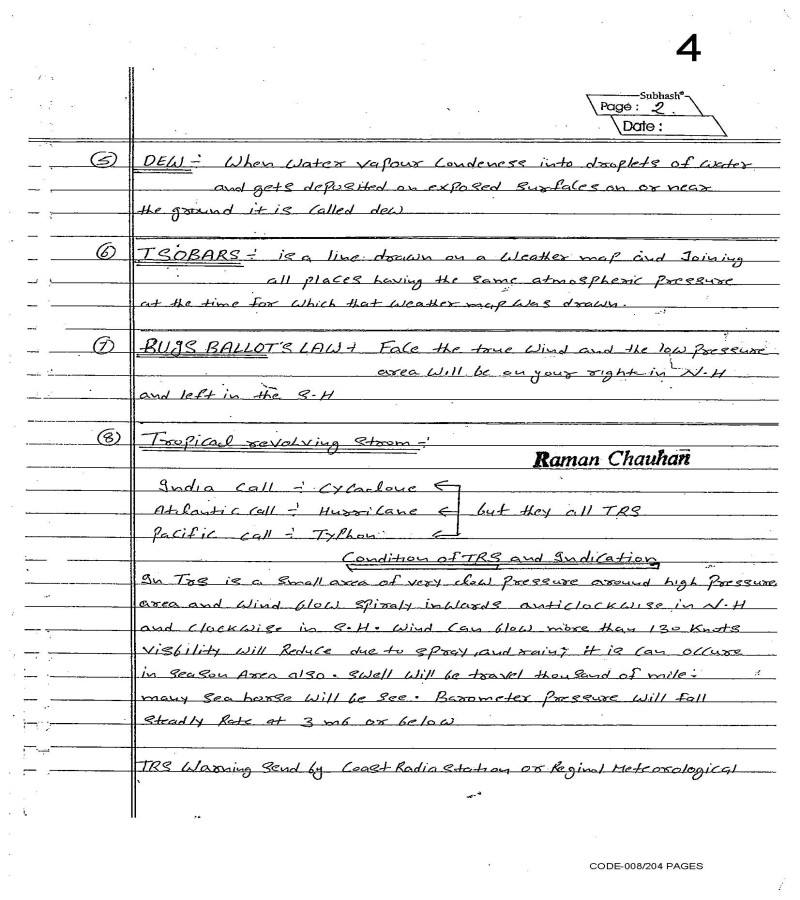 4
Subhash®
Page: 2.
Date:
(5) DEW :- When Water vapour Condeness into droplets of water
and gets deposited on exposed Surfaces on or near
the ground it is Called dew
(6) ISOBARS :- is a line drawn on a Weather map and Joining
all places having the Same atmospheric pressure
at the time for which that weather map was drawn.
(7) BUJS BALLOT'S LAW :- Face the true Wind and the low pressure
area will be on your right in N.H
and left in the S.H
(8) Tropical revolving Strom :-
Raman Chauhan
India Call :- Cycarloue
Atlantic Call :- Hurricane but they all TRS
Pacific call :- Typhon
Condition of TRS and Indication
In Trs is a Small area of very low Pressure around high Pressure
area and Wind blow Spiraly inwards anticlockwise in N.H
and clockwise in S.H. Wind Can blow more than 130 Knots
Visbility will Reduce due to spray, and rain; it is can occure
in Season Area also. Swell will be travel thousand of mile.
many sea horse will be see. Barometer Pressure will fall
steadly Rate at 3 mb or below
TRS Warning Send by Coast Radia Station or Reginal Meteorological
CODE-008/204 PAGES